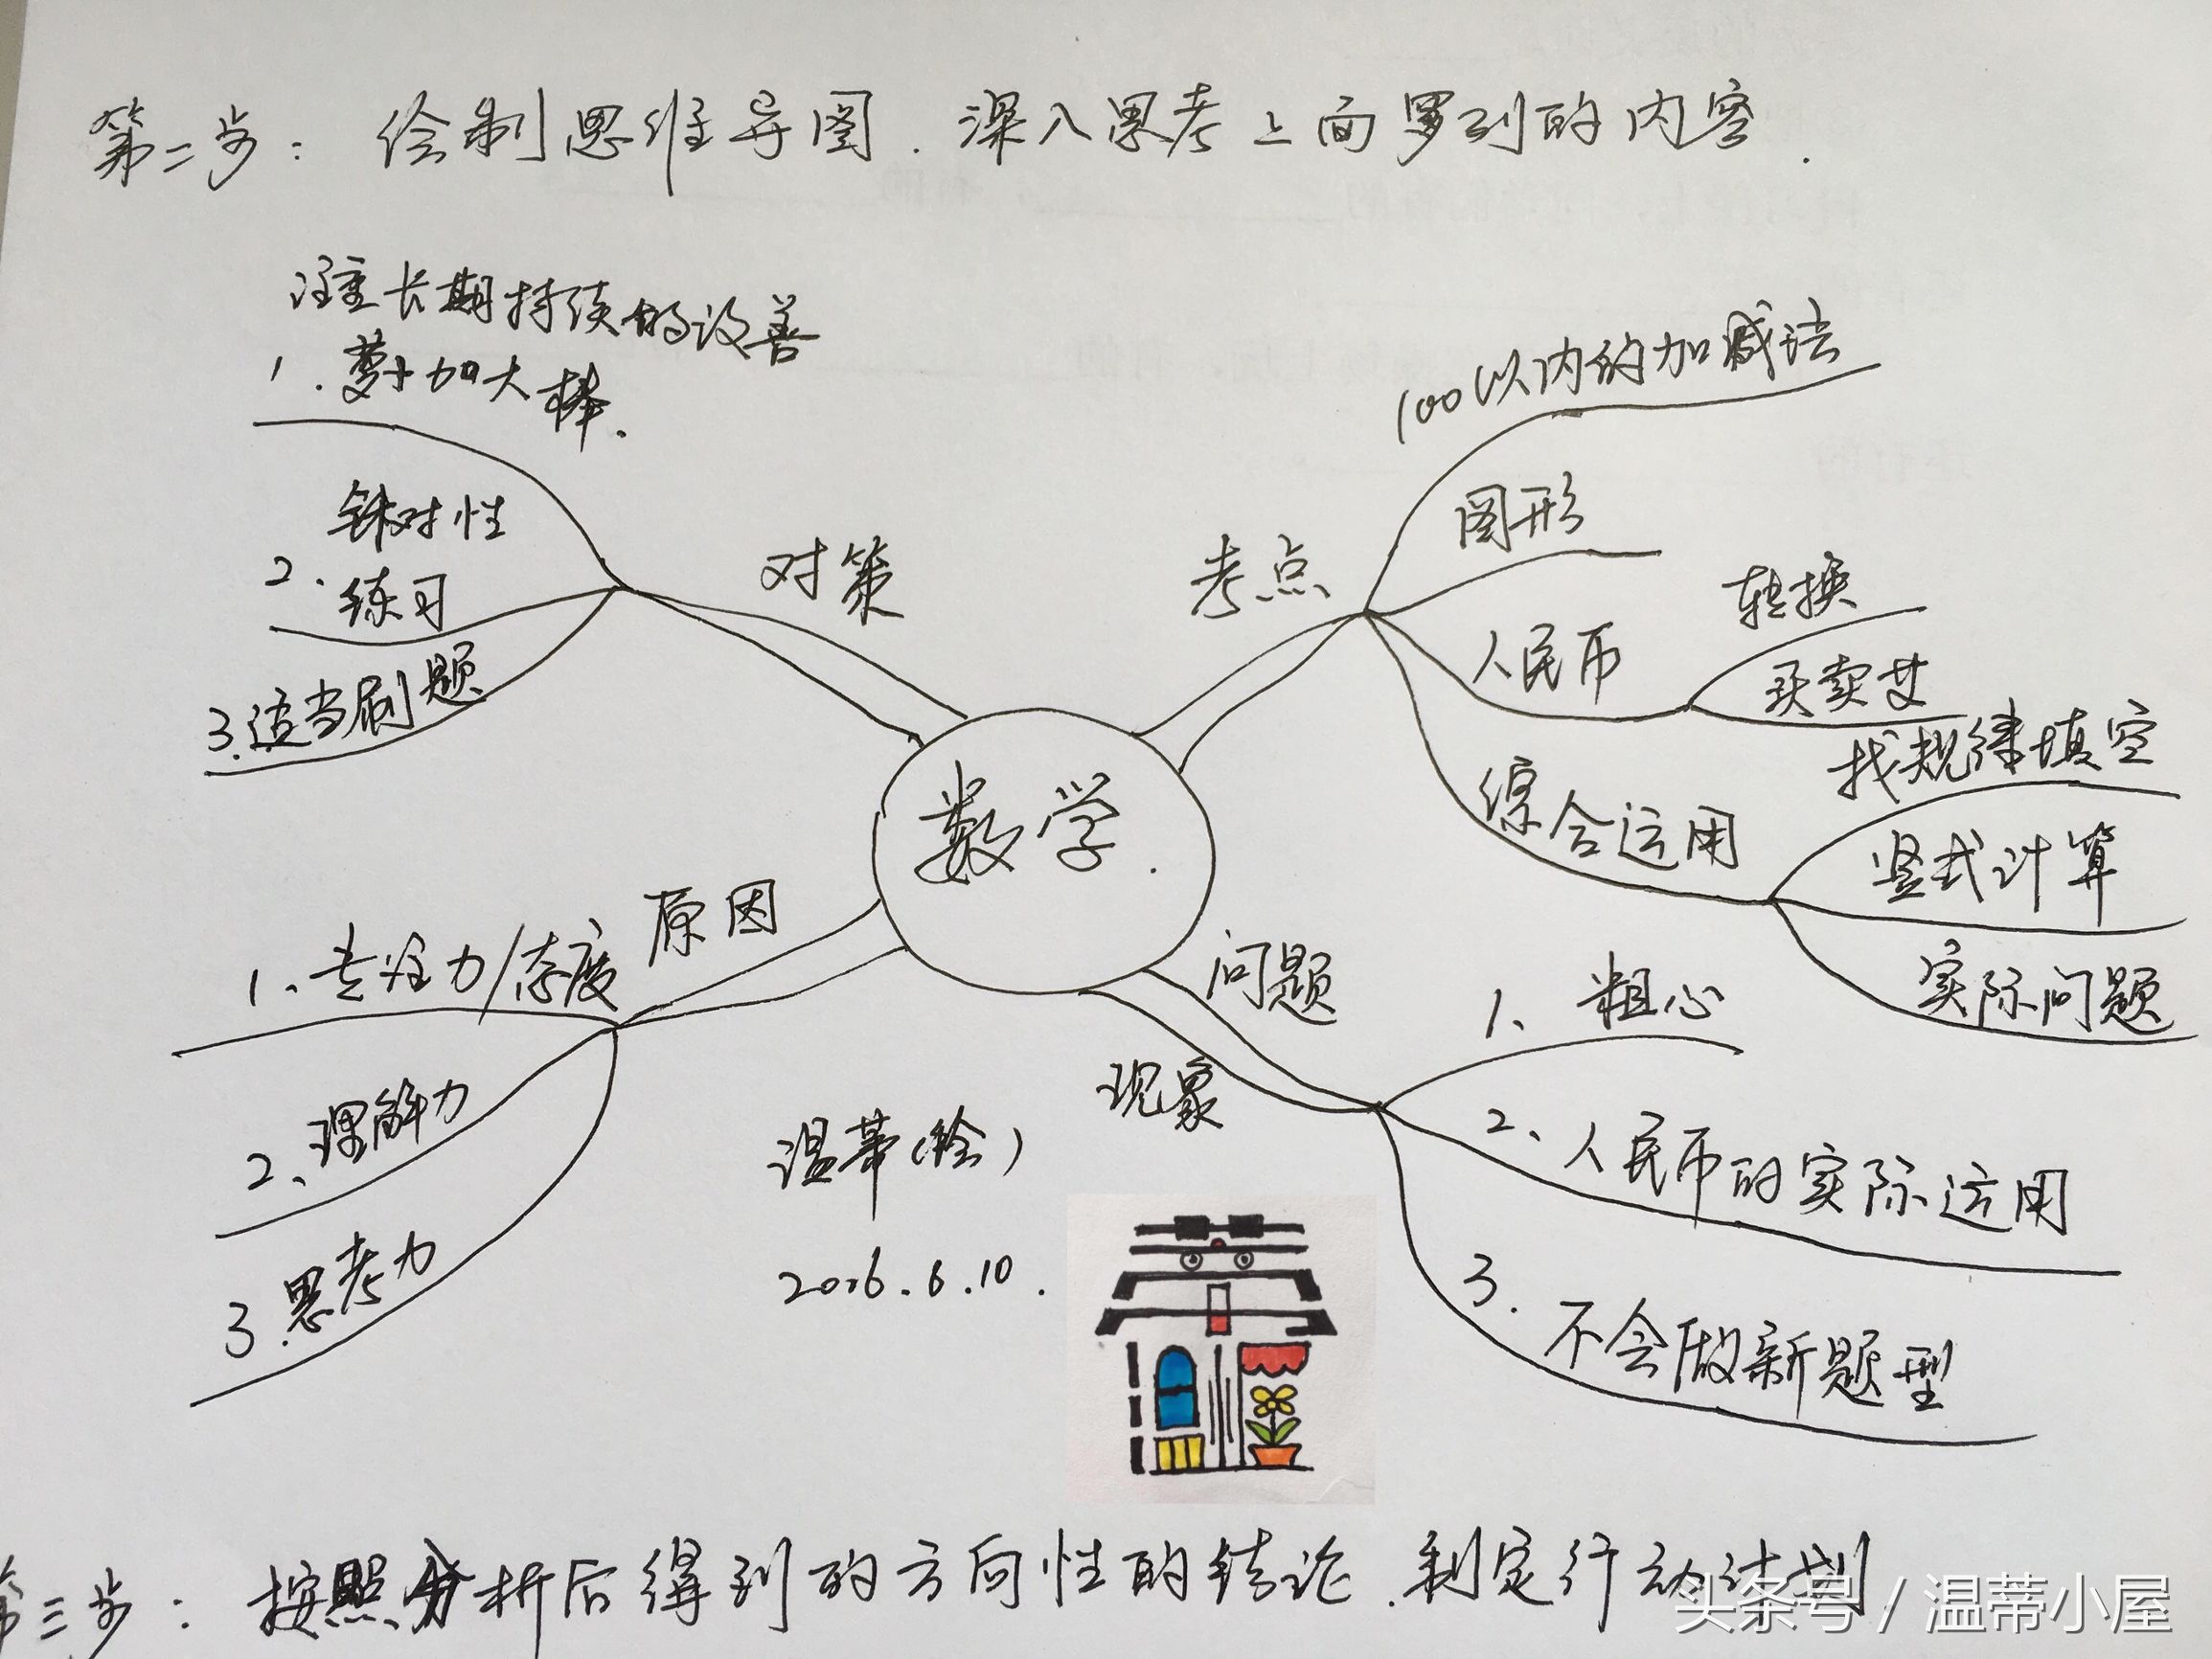 第二步：绘制思维导图．深入思考上面罗列的内容．
注重长期持续的改善
1．萝卜加大棒．
2．针对性
练习
3.适当刷题
对策
考点
100以内的加减法
图形
人民币
转换
买卖
综合运用
找规律填空
竖式计算
实际问题
数学．
原因
1、专注力/态度
2、理解力
3.思考力
问题
现象
1、粗心
2、人民币的实际运用
3．不会做新题型
温蒂(绘)
2016.6.10.
第三步：按照分析后得到的方向性的结论．制定行动计划
头条号 / 温蒂小屋